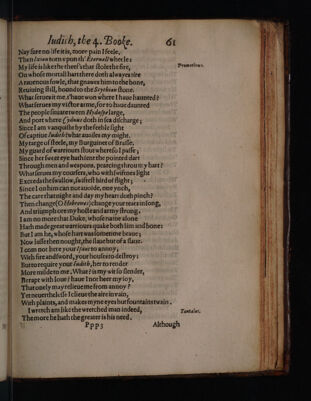 Iudith, the 4. Booke. 61
Nay sure no life it is, more pain I feele,
Then Ixion torn vpon th' Eternall wheele:
My life is like the theef's that stole the fire, Prometheus.
On whose mortall hart there doth alwayes tire
A rauenous fowle, that gnawes him to the bone,
Reuiuing still, bound to the Scythique stone.
What serues it me t'haue won where I haue haunted?
What serues my victor arme, for to haue daunted
The people situate tween Hydaspe large,
And port where Cydnus doth in sea discharge;
Since I am vanquisht by the feeble sight
Of captiue Iudith? what auailes my might,
My targe of steele, my Burguinet of Brasse,
My guard of warriours stout where so I passe;
Since her sweet eye hath sent the pointed dart
Through men and weapons, pearcing through my hart?
What serues my coursers, who with swiftnes light
Exceeds the swallow, swiftest bird of flight;
Since I on him can not auoide, one ynch,
The care that night and day my heart doth pinch?
Then change (O Hebrewes) change your tears in song,
And triumph ore my hoste and army strong,
I am no more that Duke, whose name alone
Hath made great warriours quake both lim and bone:
But I am he, whose hart was sometime braue;
Now lesse then nought, the slaue but of a slaue.
I com not here your Isaac to annoy,
With fire and sword, your houses to destroy;
But to require your Iudith, her to render
More milde to me. What? is my wit so slender,
Berapt with loue? haue I not heer my ioy,
That onely may relieue me from annoy?
Yet neuerthelesse I clieue the aire in vain,
With plaints, and makes myne eyes but fountains twain.
I wretch am like the wretched man indeed, Tantalus.
The more he hath the greater is his need.
Ppp3 Although